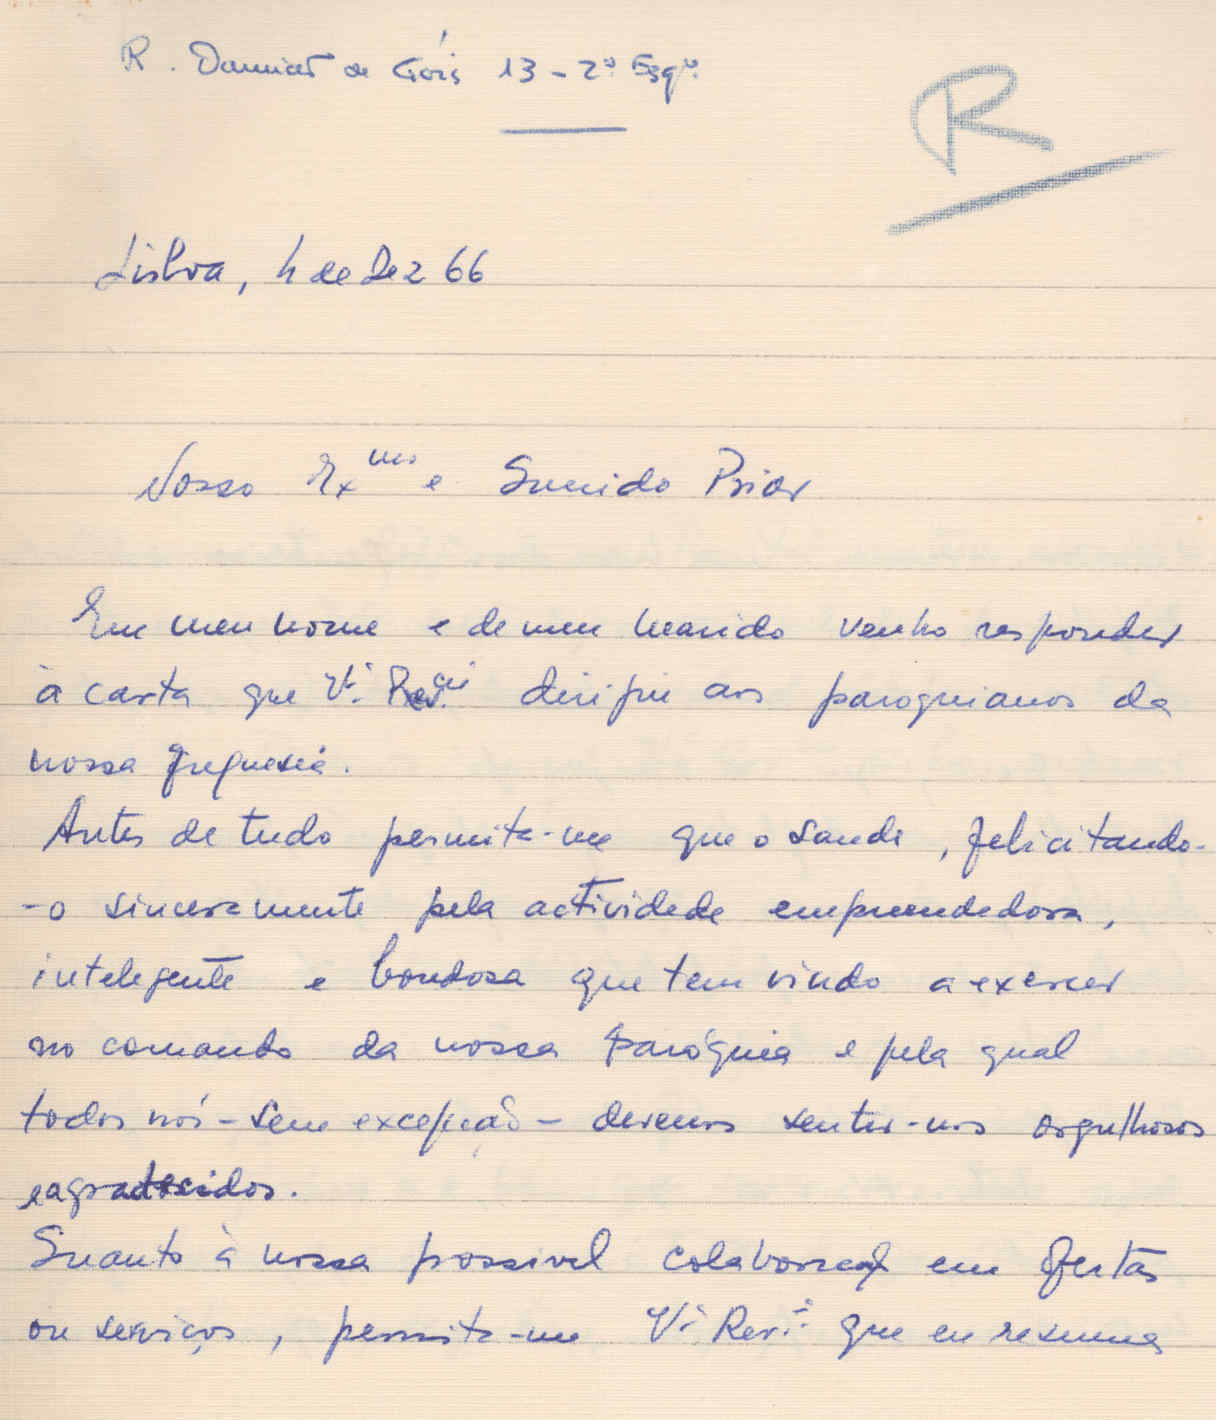 R. Damião de Góis 13-2º Esqº.
R
Lisboa, 4 de Dez 66
Nosso Exmo e Querido Prior
Em meu nome e de meu marido venho responder
à carta que Vª. Revª. dirigiu aos paroquianos da
nossa freguesia.
Antes de tudo permita-me que o saude, felicitando-
-o sinceramente pela actividade empreendedora,
intelegente e bondosa que tem vindo a exercer
no comando da nossa paróquia e pela qual
todos nós - sem excepção - devemos sentir-nos orgulhosos
e agradecidos.
Quanto à nossa possivel colaboração em ofertas
ou serviços, permita-me Vª Revª. que eu resuma